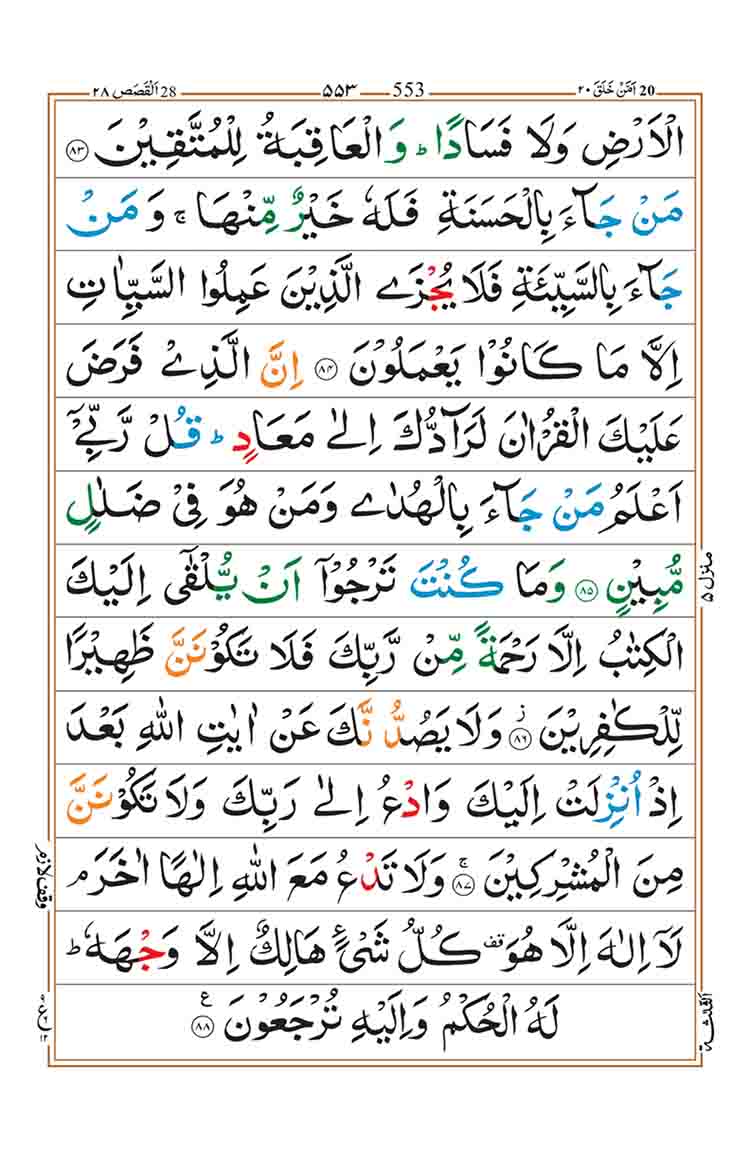 ٢٠ اَمَّنْ خَلَقَ 20
٥٥٣ 553
٢٨ اَلْقَصَص 28
الْاَرْضِ وَلَا فَسَادًا ؕ وَ الْعَاقِبَةُ لِلْمُتَّقِيْنَ ﴿٨٣﴾
مَنْ جَآءَ بِالْحَسَنَةِ فَلَهٗ خَيْرٌ مِّنْهَا ۚ وَ مَنْ
جَآءَ بِالسَّيِّئَةِ فَلَا يُجْزَى الَّذِيْنَ عَمِلُوا السَّيِّاٰتِ
اِلَّا مَا كَانُوْا يَعْمَلُوْنَ ﴿٨٤﴾ اِنَّ الَّذِيْ فَرَضَ
عَلَيْكَ الْقُرْاٰنَ لَرَآدُّكَ اِلٰى مَعَادٍ ؕ قُلْ رَّبِّيْۤ
اَعْلَمُ مَنْ جَآءَ بِالْهُدٰى وَمَنْ هُوَ فِيْ ضَلٰلٍ
مُّبِيْنٍ ﴿٨٥﴾ وَمَا كُنْتَ تَرْجُوْۤا اَنْ يُّلْقٰۤى اِلَيْكَ
الْكِتٰبُ اِلَّا رَحْمَةً مِّنْ رَّبِّكَ فَلَا تَكُوْنَنَّ ظَهِيْرًا
لِّلْكٰفِرِيْنَ ﴿٨٦﴾ ؗ وَلَا يَصُدُّنَّكَ عَنْ اٰيٰتِ اللّٰهِ بَعْدَ
اِذْ اُنْزِلَتْ اِلَيْكَ وَادْعُ اِلٰى رَبِّكَ وَلَا تَكُوْنَنَّ
مِنَ الْمُشْرِكِيْنَ ﴿٨٧﴾ ۚ وَلَا تَدْعُ مَعَ اللّٰهِ اِلٰهًا اٰخَرَ ۘ
لَاۤ اِلٰهَ اِلَّا هُوَ قف كُلُّ شَيْءٍ هَالِكٌ اِلَّا وَجْهَهٗ ؕ
لَهُ الْحُكْمُ وَاِلَيْهِ تُرْجَعُوْنَ ﴿٨٨﴾ ع
منزل ٥
وقف لازم
الثلثة